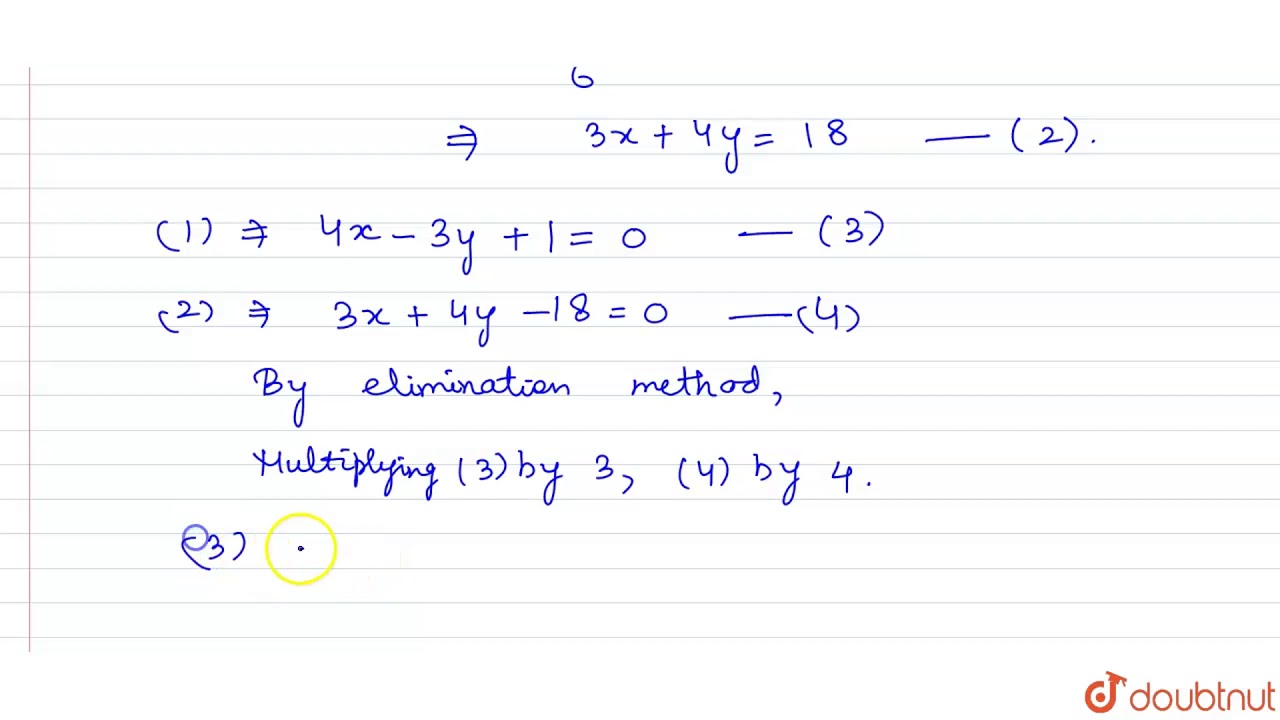 6
⇒ 3x + 4y = 18 — (2).
(1) ⇒ 4x - 3y + 1 = 0 — (3)
(2) ⇒ 3x + 4y - 18 = 0 — (4)
By elimination method,
Multiplying (3) by 3, (4) by 4.
(3)
doubtnut